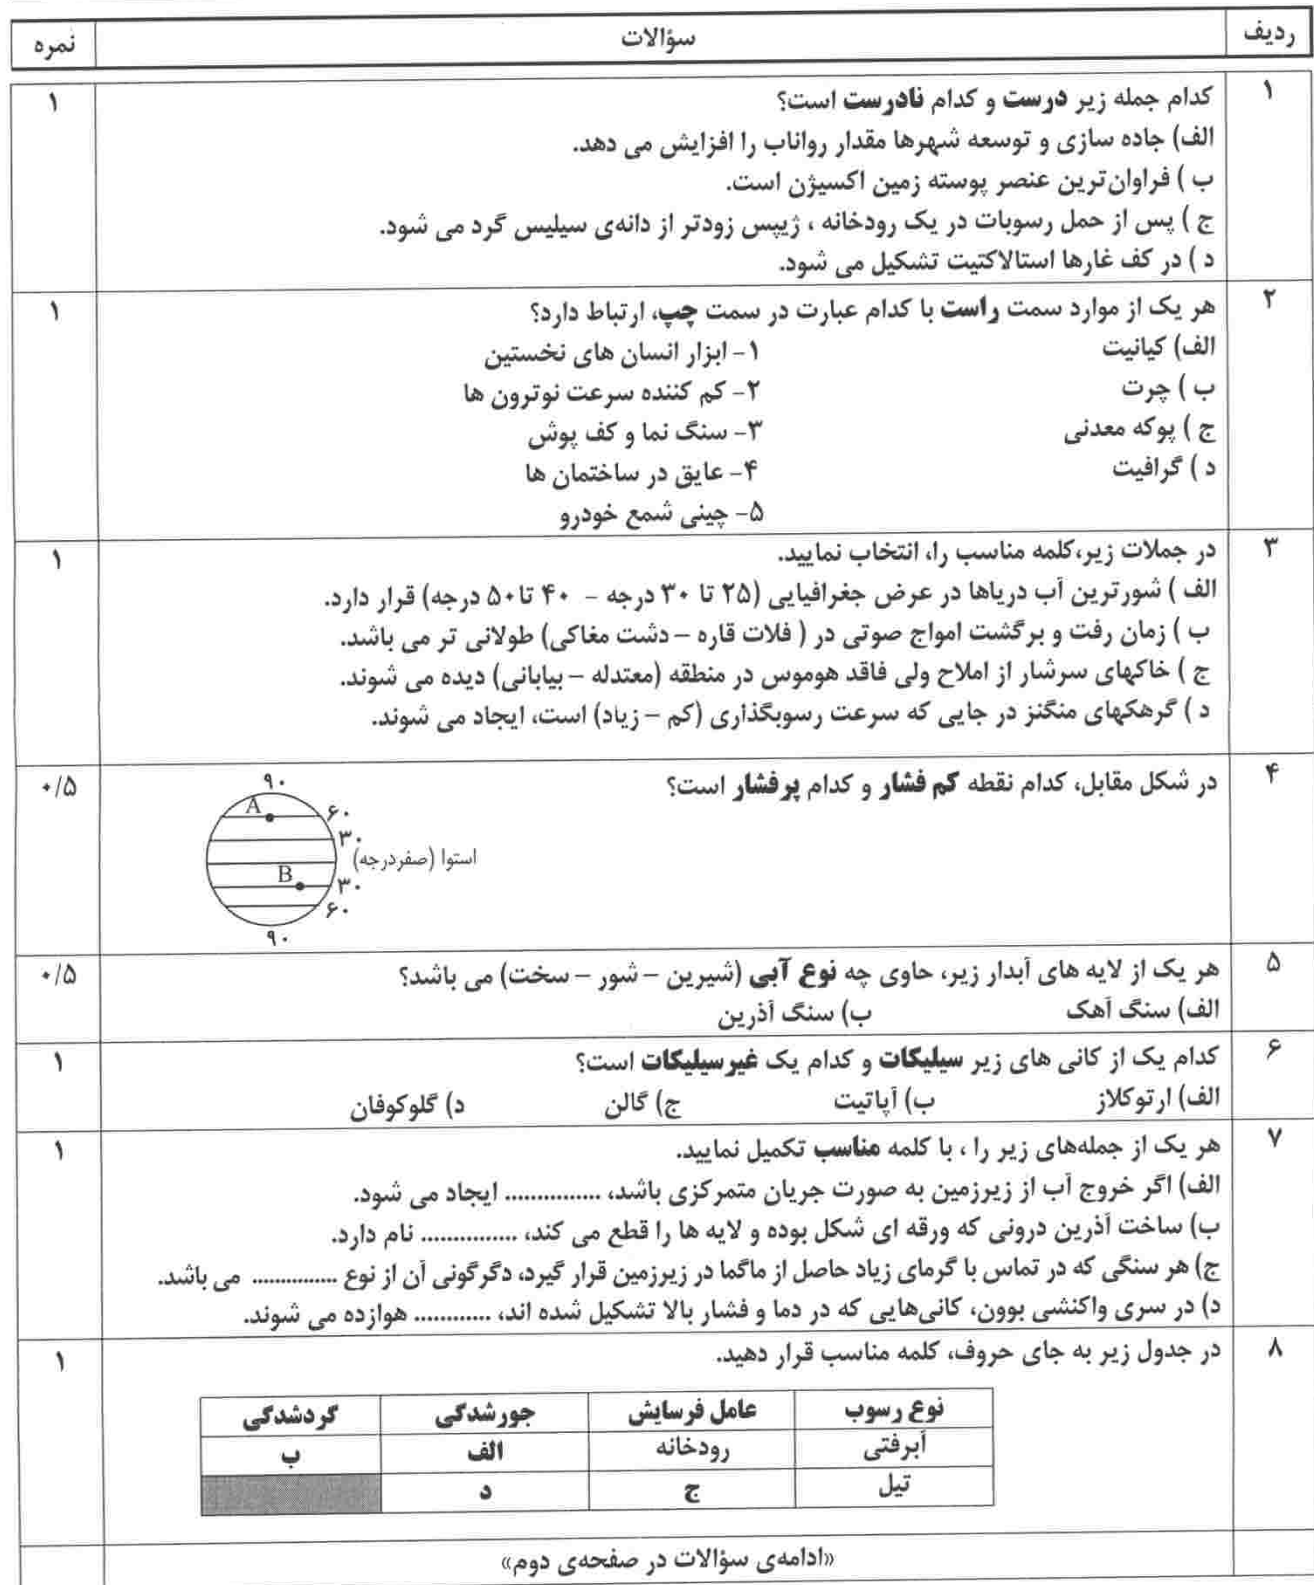 ردیف سؤالات نمره
۱ کدام جمله زیر درست و کدام نادرست است؟ ۱
الف) جاده سازی و توسعه شهرها مقدار رواناب را افزایش می دهد.
ب ) فراوان‌ترین عنصر پوسته زمین اکسیژن است.
ج ) پس از حمل رسوبات در یک رودخانه ، ژیپس زودتر از دانه‌ی سیلیس گرد می شود.
د ) در کف غارها استالاکتیت تشکیل می شود.
۲ هر یک از موارد سمت راست با کدام عبارت در سمت چپ، ارتباط دارد؟ ۱
الف) کیانیت ۱- ابزار انسان های نخستین
ب ) چرت ۲- کم کننده سرعت نوترون ها
ج ) پوکه معدنی ۳- سنگ نما و کف پوش
د ) گرافیت ۴- عایق در ساختمان ها
۵- چینی شمع خودرو
۳ در جملات زیر،کلمه مناسب را، انتخاب نمایید. ۱
الف ) شورترین آب دریاها در عرض جغرافیایی (۲۵ تا ۳۰ درجه - ۴۰ تا۵۰ درجه) قرار دارد.
ب ) زمان رفت و برگشت امواج صوتی در ( فلات قاره – دشت مغاکی) طولانی تر می باشد.
ج ) خاکهای سرشار از املاح ولی فاقد هوموس در منطقه (معتدله – بیابانی) دیده می شوند.
د ) گرهکهای منگنز در جایی که سرعت رسوبگذاری (کم – زیاد) است، ایجاد می شوند.
۴ در شکل مقابل، کدام نقطه کم فشار و کدام پرفشار است؟ ۰/۵
۹۰
A ۶۰
۳۰
استوا (صفردرجه)
B ۳۰
۶۰
۹۰
۵ هر یک از لایه های آبدار زیر، حاوی چه نوع آبی (شیرین – شور – سخت) می باشد؟ ۰/۵
الف) سنگ آهک ب) سنگ آذرین
۶ کدام یک از کانی های زیر سیلیکات و کدام یک غیرسیلیکات است؟ ۱
الف) ارتوکلاز ب) آپاتیت ج) گالن د) گلوکوفان
۷ هر یک از جمله‌های زیر را ، با کلمه مناسب تکمیل نمایید. ۱
الف) اگر خروج آب از زیرزمین به صورت جریان متمرکزی باشد، ............... ایجاد می شود.
ب) ساخت آذرین درونی که ورقه ای شکل بوده و لایه ها را قطع می کند، ............... نام دارد.
ج) هر سنگی که در تماس با گرمای زیاد حاصل از ماگما در زیرزمین قرار گیرد، دگرگونی آن از نوع ............... می باشد.
د) در سری واکنشی بوون، کانی‌هایی که در دما و فشار بالا تشکیل شده اند، ............ هوازده می شوند.
۸ در جدول زیر به جای حروف، کلمه مناسب قرار دهید. ۱
نوع رسوب عامل فرسایش جورشدگی گردشدگی
آبرفتی رودخانه الف ب
تیل ج د
«ادامه‌ی سؤالات در صفحه‌ی دوم»